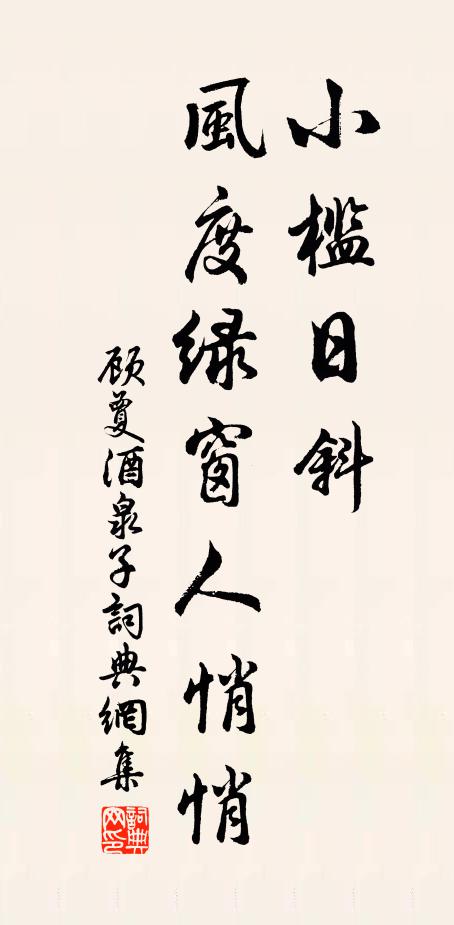 小檻日斜
風度緑窗人悄悄
顾敻酒泉子詞典網集
詞典網印